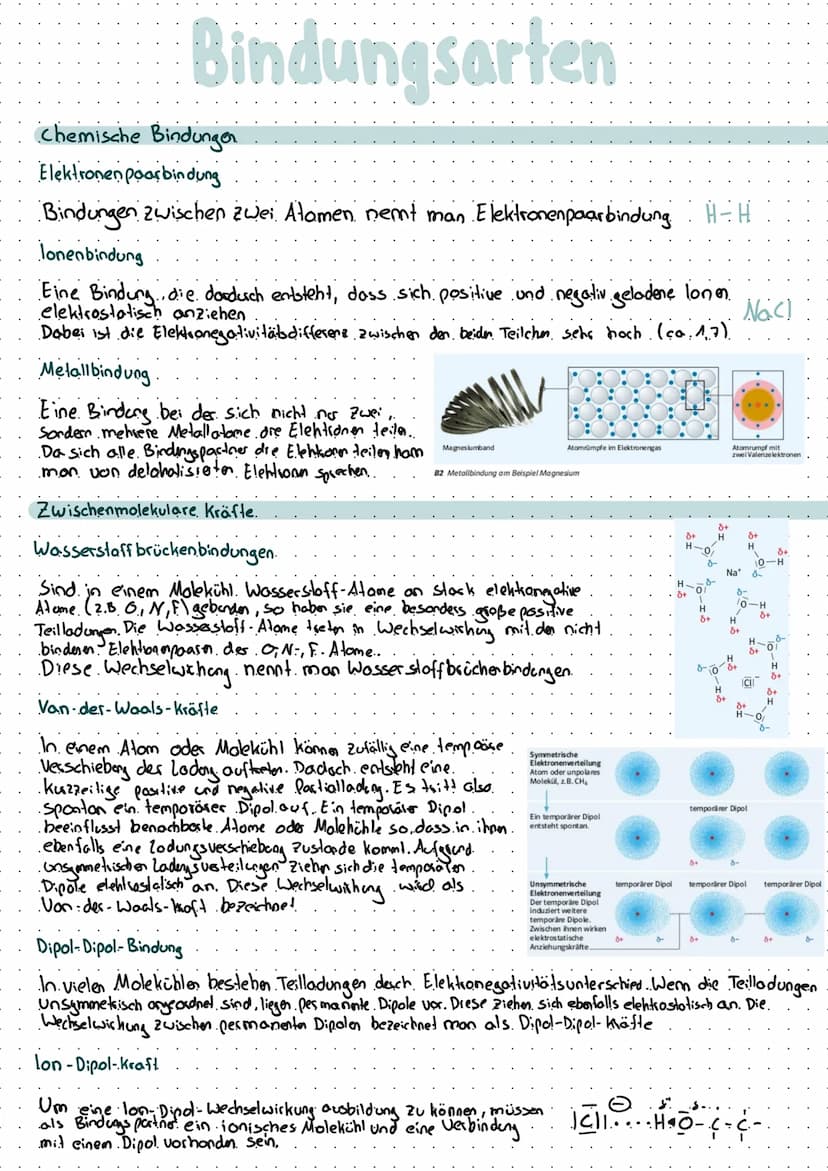 Bindungsarten
Chemische Bindungen
Elektronenpaarbindung
Bindungen zwischen zwei Atomen nennt man Elektronenpaarbindung H-H
Ionenbindung
Eine Bindung, die dadurch entsteht, dass sich positive und negativ geladene Ionen
elektrostatisch anziehen NaCl
Dabei ist die Elektronegativitätsdifferenz zwischen den beiden Teilchen sehr hoch (ca. 1,7)
Metallbindung
Eine Bindung bei der sich nicht nur zwei,
sondern mehrere Metallatome die Elektronen teilen.
Da sich alle Bindungspartner die Elektronen teilen kann
man von delokalisierten Elektronen sprechen.
Magnesiumband
Atomrümpfe im Elektronengas
Atomrumpf mit
zwei Valenzelektronen
B2 Metallbindung am Beispiel Magnesium
Zwischenmolekulare Kräfte
Wasserstoffbrückenbindungen
Sind in einem Molekühl Wasserstoff-Atome an stark elektronegative
Atome (z.B. O, N, F) gebunden, so haben sie eine besonders große positive
Teilladungen. Die Wasserstoff-Atome treten in Wechselwirkung mit den nicht
bindenen Elektronenpaaren der O-, N-, F- Atome.
Diese Wechselwirkung nennt man Wasserstoffbrückenbindungen
Na⁺
Cl⁻
Van-der-Waals-Kräfte
In einem Atom oder Molekühl können zufällig eine temporäre
Verschiebung der Ladung auftreten. Dadurch entsteht eine
kurzzeitige positive und negative Partialladung. Es tritt also
spontan ein temporärer Dipol auf. Ein temporärer Dipol
beeinflusst benachbarte Atome oder Molekühle so, dass in ihnen
ebenfalls eine Ladungsverschiebung zustande kommt. Aufgrund
unsymmetrischer Ladungsverteilungen ziehen sich die temporären
Dipole elektrostatisch an. Diese Wechselwirkung wird als
Van-der-Waals-Kraft bezeichnet
Symmetrische
Elektronenverteilung
Atom oder unpolares
Molekül, z.B. CH₄
Ein temporärer Dipol
entsteht spontan.
temporärer Dipol
δ+ δ-
Unsymmetrische
Elektronenverteilung
Der temporäre Dipol
induziert weitere
temporäre Dipole.
Zwischen ihnen wirken
elektrostatische
Anziehungskräfte
temporärer Dipol temporärer Dipol temporärer Dipol
δ+ δ- δ+ δ- δ+ δ-
Dipol-Dipol-Bindung
In vielen Molekühlen bestehen Teilladungen durch Elektronegativitätsunterschied. Wenn die Teilladungen
unsymmetrisch angeordnet sind, liegen permanente Dipole vor. Diese ziehen sich ebenfalls elektrostatisch an. Die
Wechselwirkung zwischen permanenten Dipolen bezeichnet man als Dipol-Dipol-Kräfte
Ion-Dipol-Kraft
Um eine Ion-Dipol-Wechselwirkung ausbildung zu können, müssen
als Bindungspartner ein ionisches Molekühl und eine Verbindung
mit einem Dipol vorhanden sein.